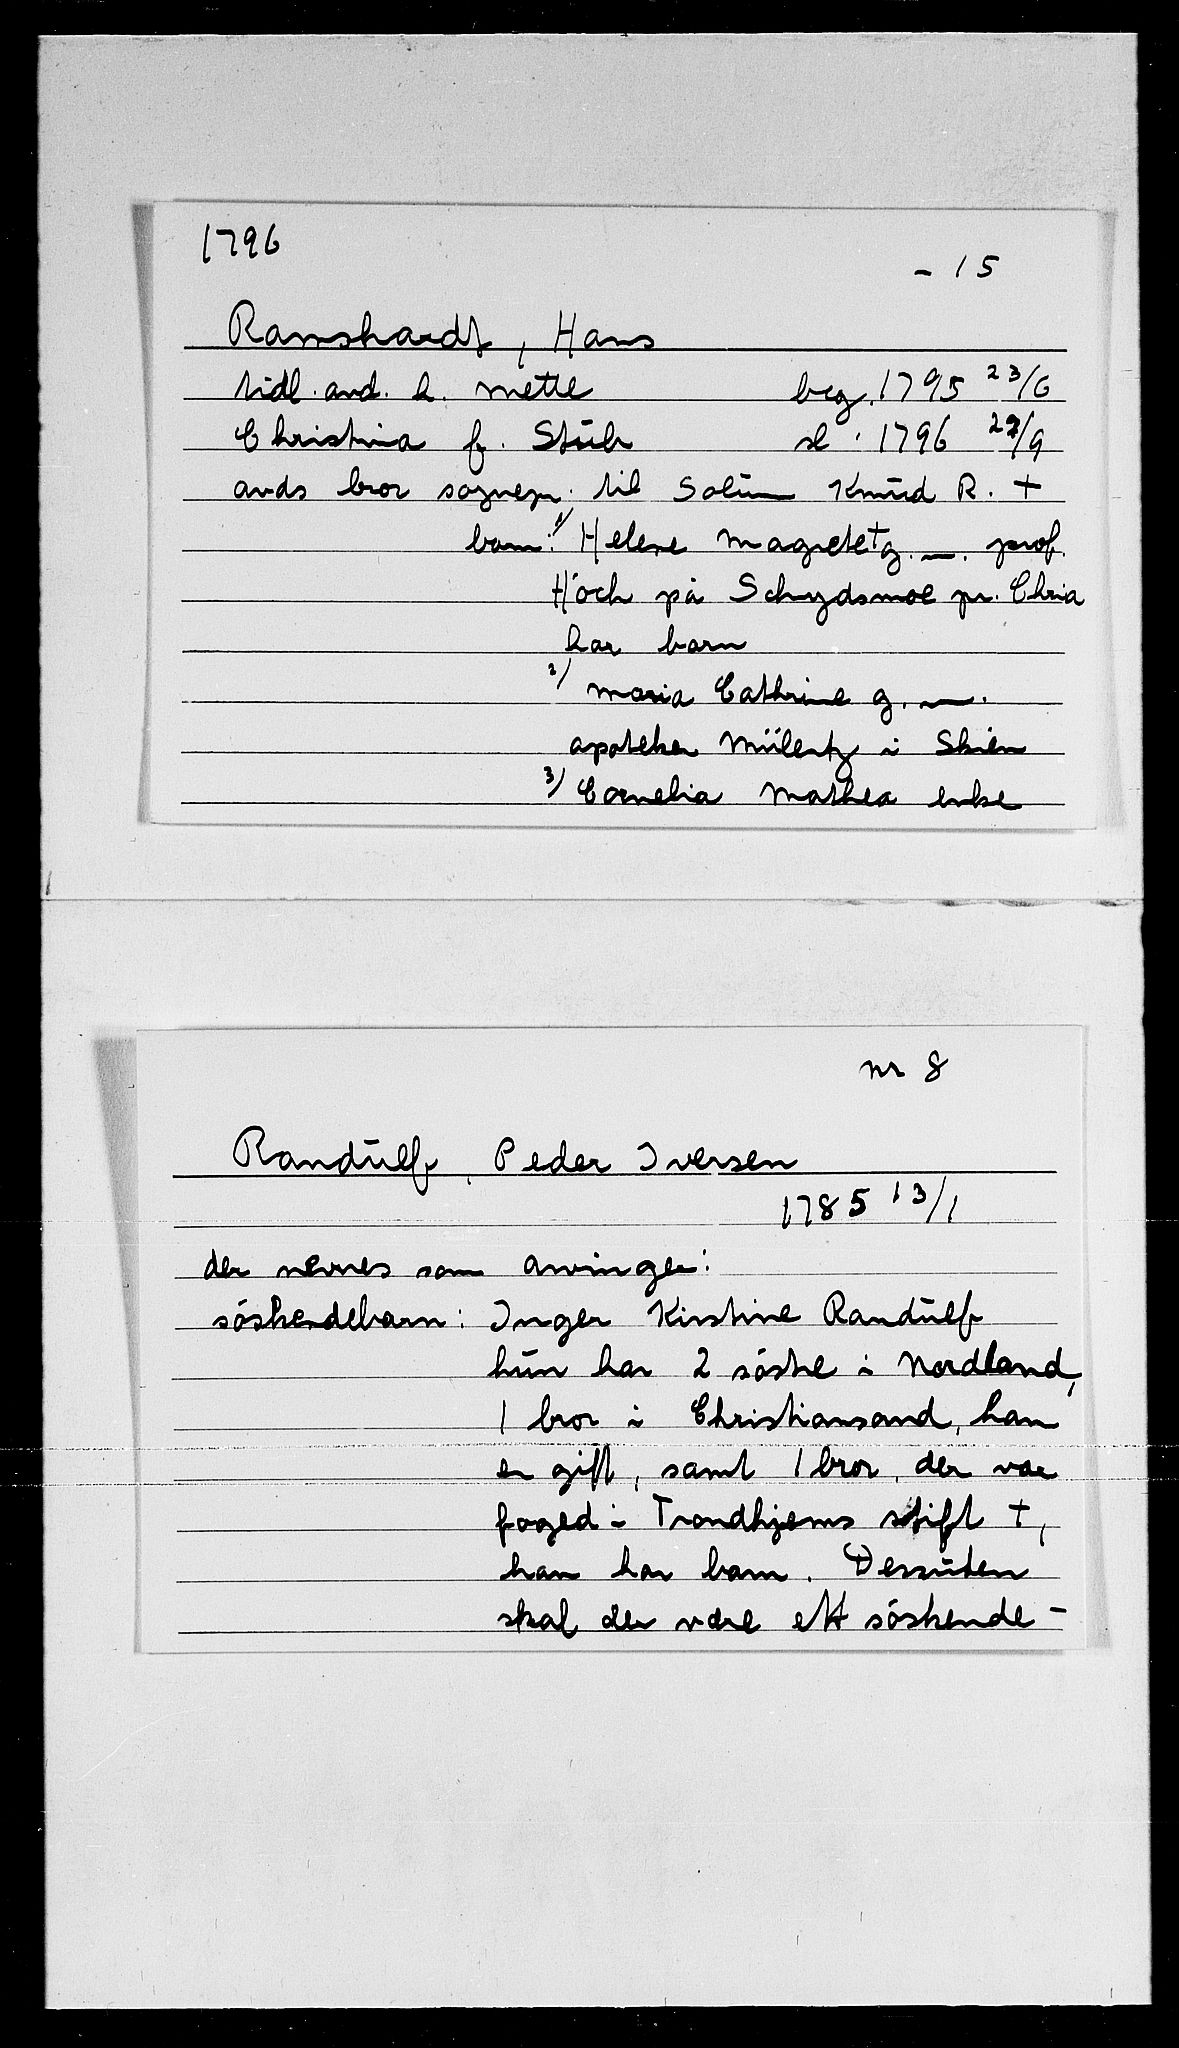 1796
- 15
Ramshardt, Hans
tidl. avd. h. Mette beg. 1795 23/6
Christina f. Stub sl. 1796 22/9
avds bror sognepr. til Solum Knud R. +
barn: 1/ Helene Magrete + g. —. prof.
Höch på Schydsmoe pr. Chria
har barn
2/ Maria Cathrine g. —.
apoteker Müllertz i Skien
3/ Cornelia Mathea enke
nr 8
Randulf, Peder Iversen
1785 13/1
der nevnes som arvinger:
söskendebarn: Inger Kirstine Randulf
hun har 2 söstre i Nordland,
1 bror i Christiansand, han
er gift, samt 1 bror, der var
foged i Trondhjems stift +,
han har barn. Dessuten
skal der være ett söskende-